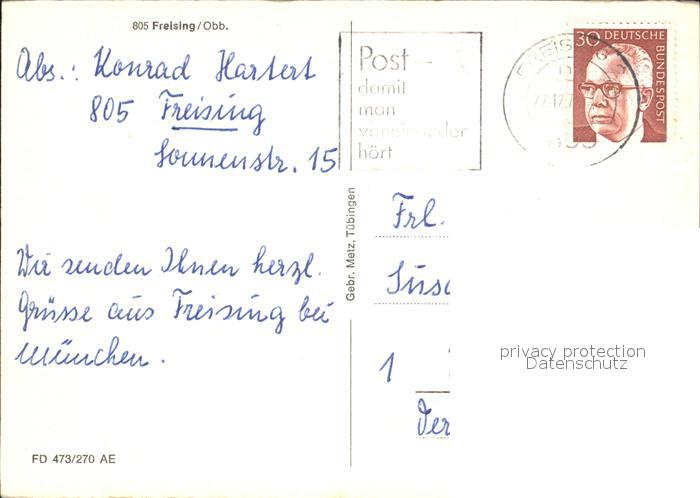 805 Freising/Obb.
Abs.: Konrad Hartert
805 Freising
Sonnenstr. 15
Wir senden Ihnen herzl.
Grüsse aus Freising bei
München.
FD 473/270 AE
Gebr. Metz, Tübingen
Post–
damit
man
voneinander
hört
30 DEUTSCHE
BUNDESPOST
Frl.
1
privacy protection
Datenschutz